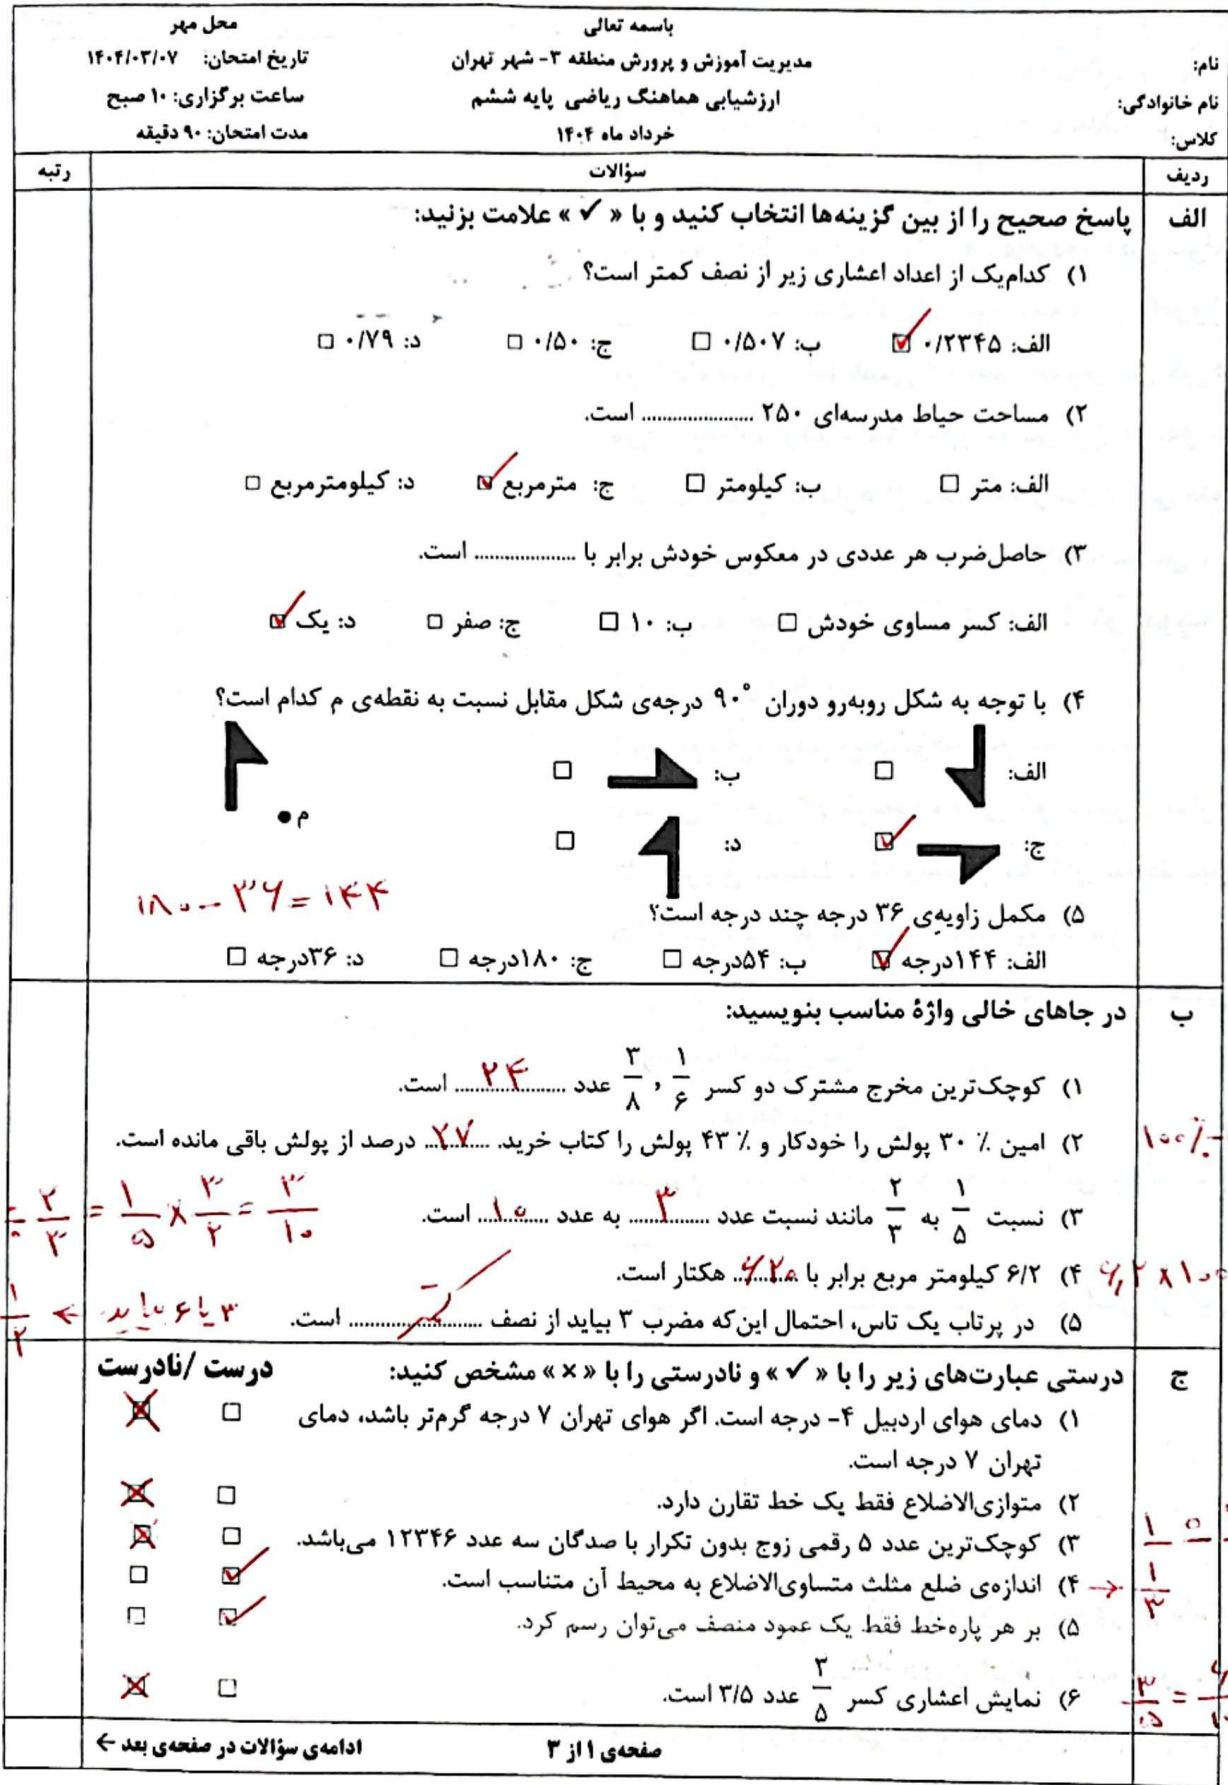 باسمه تعالی
محل مهر
نام:
مدیریت آموزش و پرورش منطقه ۳- شهر تهران
تاریخ امتحان: ۱۴۰۴/۰۳/۰۷
نام خانوادگی:
ارزشیابی هماهنگ ریاضی پایه ششم
ساعت برگزاری: ۱۰ صبح
کلاس:
خرداد ماه ۱۴۰۴
مدت امتحان: ۹۰ دقیقه
ردیف سؤالات رتبه
الف پاسخ صحیح را از بین گزینه‌ها انتخاب کنید و با « ✓ » علامت بزنید:
۱) کدام‌یک از اعداد اعشاری زیر از نصف کمتر است؟
الف: ۰/۲۳۴۵ ☑ ب: ۰/۵۰۷ □ ج: ۰/۵۰ □ د: ۰/۷۹ □
۲) مساحت حیاط مدرسه‌ای ۲۵۰ .................... است.
الف: متر □ ب: کیلومتر □ ج: مترمربع ☑ د: کیلومترمربع □
۳) حاصل‌ضرب هر عددی در معکوس خودش برابر با .................. است.
الف: کسر مساوی خودش □ ب: ۱۰ □ ج: صفر □ د: یک ☑
۴) با توجه به شکل روبه‌رو دوران ۹۰° درجه‌ی شکل مقابل نسبت به نقطه‌ی م کدام است؟
الف: □ ب: □
م
ج: ☑ د: □
۱۸۰ - ۳۶ = ۱۴۴
۵) مکمل زاویه‌ی ۳۶ درجه چند درجه است؟
الف: ۱۴۴درجه ☑ ب: ۵۴درجه □ ج: ۱۸۰درجه □ د: ۳۶درجه □
ب در جاهای خالی واژهٔ مناسب بنویسید:
۱) کوچک‌ترین مخرج مشترک دو کسر ۱/۶ ، ۳/۸ عدد ۲۴ است.
۲) امین ٪ ۳۰ پولش را خودکار و ٪ ۴۳ پولش را کتاب خرید. ۲۷ درصد از پولش باقی مانده است.
۱۰۰٪ -
۳) نسبت ۱/۵ به ۲/۳ مانند نسبت عدد ۳ به عدد ۱۰ است.
۲/۳ = ۱/۵ × ۳/۲ = ۳/۱۰
۴) ۶/۲ کیلومتر مربع برابر با ۶۲۰ هکتار است.
۶,۲ × ۱۰۰
۵) در پرتاب یک تاس، احتمال این‌که مضرب ۳ بیاید از نصف ........................ است.
۳ یا ۶ بیاید ← ۱/۲
ج درستی عبارت‌های زیر را با « ✓ » و نادرستی را با « × » مشخص کنید: درست /نادرست
۱) دمای هوای اردبیل ۴- درجه است. اگر هوای تهران ۷ درجه گرم‌تر باشد، دمای
تهران ۷ درجه است.
۲) متوازی‌الاضلاع فقط یک خط تقارن دارد.
۳) کوچک‌ترین عدد ۵ رقمی زوج بدون تکرار با صدگان سه عدد ۱۲۳۴۶ می‌باشد.
۴) اندازه‌ی ضلع مثلث متساوی‌الاضلاع به محیط آن متناسب است.
→ ۱/۳
۵) بر هر پاره‌خط فقط یک عمود منصف می‌توان رسم کرد.
۶) نمایش اعشاری کسر ۳/۵ عدد ۳/۵ است.
۳/۵ =
صفحه‌ی ۱ از ۳
ادامه‌ی سؤالات در صفحه‌ی بعد ←